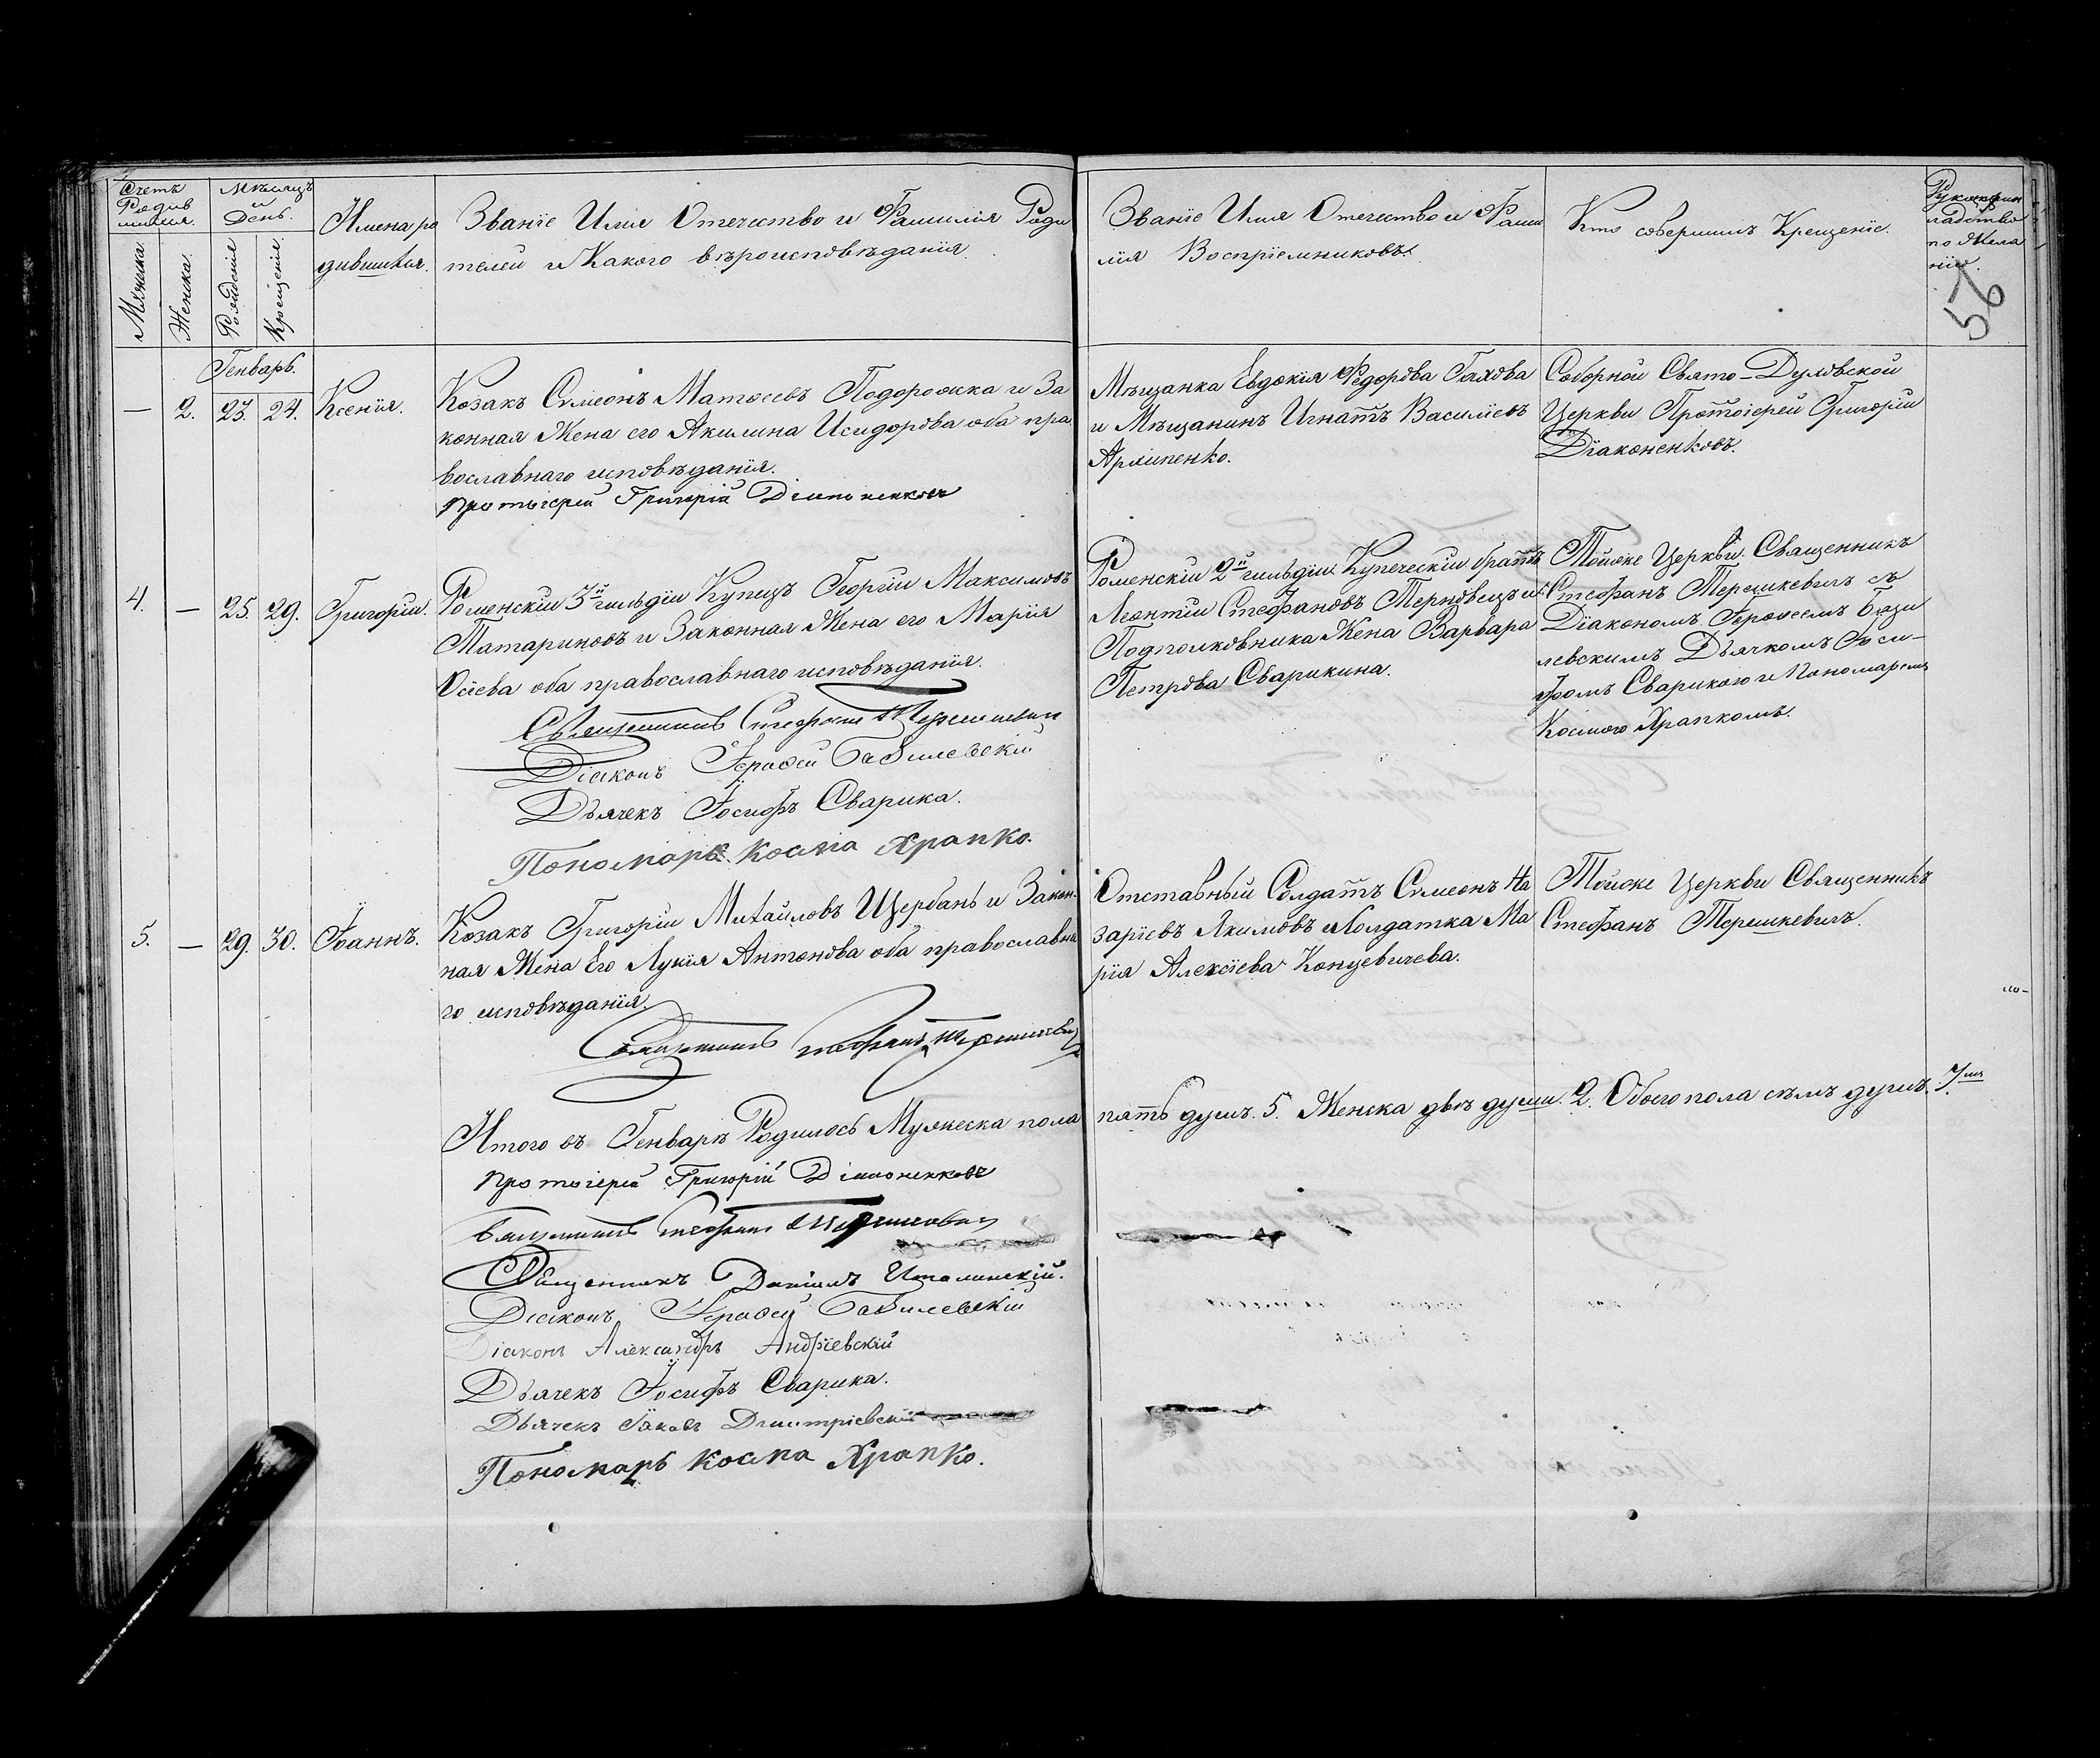 Счетъ
Родив
шихся.
Мѣсяцъ
и
День.
Мужска.
Женска.
Рождения
Крещения.
Имена ро
дившихся.
Званіе Имя Отечество и Фамилія Роди
телей и Какого вѣроисповѣданія.
Званіе Имя Отечество и Фами
лія Воспріемниковъ.
Кто совершилъ Крещеніе.
Рукоприк
ладство
по Жела
нію.
56
Генварь.
— 2. 23. 24. Ксенія.
Козакъ Симеонъ Матѳеевъ Подорожка и За
конная Жена его Акилина Исидорова оба пра
вославнаго исповѣданія.
Протоіерей Григорій Діаконенковъ
Мѣщанка Евдокія Федорова
и Мѣщанинъ Игнатъ Василіевъ
Архипенко.
Соборной Свято-Духовской
Церкви Протоіерей Григорій
Діаконенковъ.
4. — 25. 29. Григорій.
Роменскій 3й гильдіи Купецъ Георгій Максимовъ
Татариновъ и Законная Жена его Марія
Осіева оба православнаго исповѣданія.
Священникъ Стефанъ Терешкевичъ
Діаконъ Іероѳей Базилевскій
Дьячекъ Іосифъ Сварика.
Пономарь Косма Храпко.
Роменскій 2й гильдіи Купеческій братъ
Леонтій Стефановъ Терновецъ и
Подполковника Жена Варвара
Петрова Сварикина.
Тойже Церкви Священникъ
Стефанъ Терешкевичъ съ
Діакономъ Іероѳеемъ Бази
левскимъ Дьячкомъ Іоси-
фомъ Сварикою и Пономаремъ
Космою Храпкомъ.
5. — 29. 30. Іоаннъ.
Козакъ Григорій Михайловъ Щербань и Закон-
ная Жена Его Лукія Антонова оба православна
го исповѣданія.
Священникъ Стефанъ Терешкевичъ
Отставный Солдатъ Симеонъ На
заріевъ Якимовъ и Солдатка Ма
рія Алексіева Концевичева.
Тойже Церкви Священникъ
Стефанъ Терешкевичъ.
Итого въ Генварѣ Родилось Мужеска пола пять душъ. 5. Женска двѣ души. 2. Обоего пола семь душъ. 7.
Протоіерей Григорій Діаконенковъ
Священникъ Стефанъ Терешкевичъ
Священникъ Даніилъ Италинскій.
Діаконъ Іероѳей Базилевскій
Діаконъ Александръ Андріевскій
Дьячекъ Іосифъ Сварика.
Дьячекъ Іаковъ Дмитріевскій
Пономарь Косма Храпко.